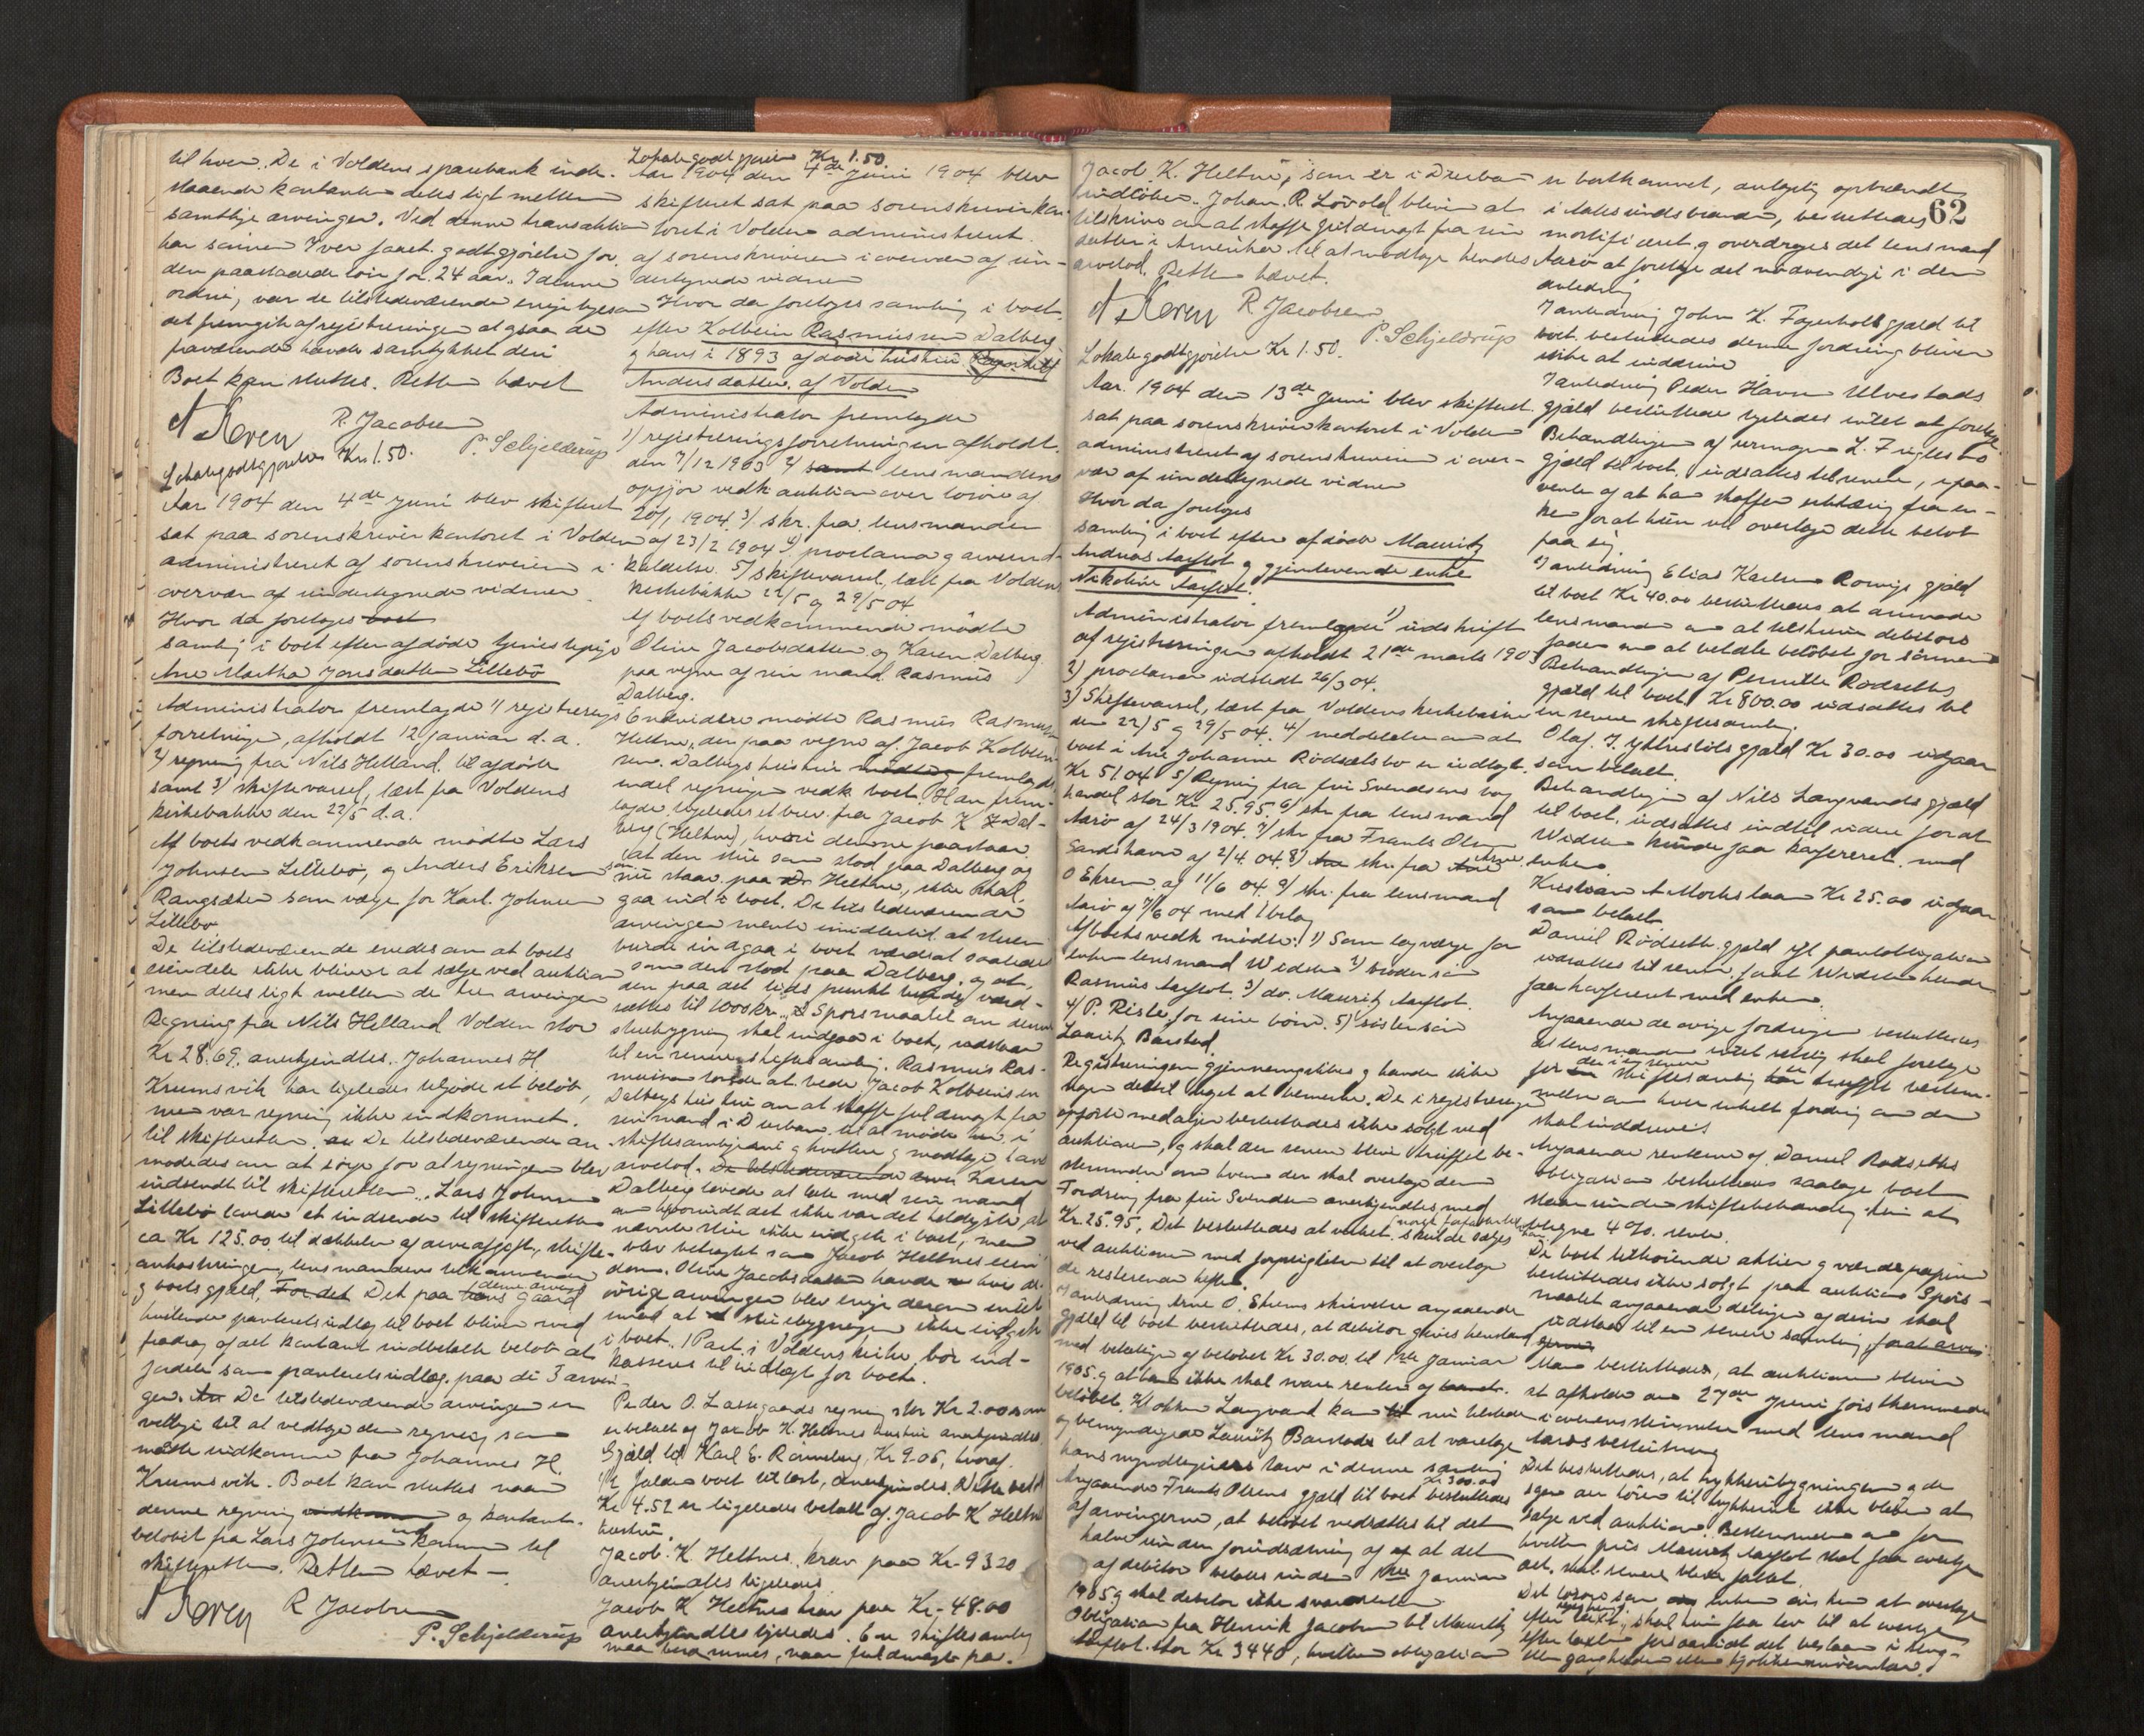 til hver. De i Voldens sparebank inde-
staaende kontanter deles ligt mellem
samtlige arvinger. Ved denne transaktion
har sønnen Iver faaet godtgjørelse for
den paastaaede løn for 24 aar. I denne
ordning var de tilstedeværende enige ligesom
det fremgik af registreringen at ogsaa de
fraværende havde samtykket deri
Boet kan sluttes. Retten hævet
R. Jacobsen
P. Schjelderup
Lokalegodtgjørelse Kr 1.50.
Aar 1904 den 4de Juni blev skifteret
sat paa sorenskriverkontoret i Volden
administreret af sorenskriveren i
overvær af undertegnede vidner.
Hvor da foretoges
samling i boet efter afdøde tjenestepige
Ane Martha Jonsdatter Lillebø
Administrator fremlagde 1) registrerings
forretning, afholdt 12 januar d.a.
2) regning fra Nils Helland til afdøde
samt 3) skiftevarsel, læst fra Voldens
kirkebakke den 22/5 d.a.
Af boets vedkommende mødte Lars
Johnsen Lillebø, og Anders Eriksen
Rangsæter som værge for Karl Johnsen
Lillebø
De tilstedeværende enedes om at boets
eiendele ikke bliver at sælge ved auktion
men deles ligt mellem de tre arvinger
Regning fra Nils Helland Volden stor
Kr 28.69. anerkjendtes. Johannes H.
Krumsvik har ligeledes tilgode et beløb,
men var regning ikke indkommet
til skifteretten. De tilstedeværende an
modedes om at sørge for at regningen blev
indsendt til skifteretten. Lars Johnsen
Lillebø lovede at indsende til skifteretten
ca Kr 125.00 til dækkelse af arveafgift, skifte-
omkostninger, lensmandens tilkommende
og boets gjæld. Det paa denne arvings gaard
heftende panteretsindlæg til boet bliver med
fradrag af det kontant indbetalte beløb at
fordele som panteretsindlæg paa de 3 arvin-
ger. De tilstedeværende arvinger er
villige til at vedtage den regning som
maatte indkomme fra Johannes H.
Krumsvik. Boet kan sluttes naar
denne regning og kontant-
beløbet fra Lars Johnsen er kommet til
skifteretten. Retten hævet —
R Jacobsen
P. Schjelderup
Lokalegodtgjørelse Kr 1.50.
Aar 1904 den 4de Juni 1904 blev
skifteret sat paa sorenskriverkon-
toret i Volden administreret
af sorenskriveren i overvær af un-
dertegnede vidner
Hvor da foretoges samling i boet
efter Kolbein Rasmussen Dalberg
og hans i 1893 afdøde hustru Ragnhild
Andersdatter af Volden
Administrator fremlagde
1) registreringsforretningen afholdt
den 7/12 1903 2) lensmandens
opgjør vedk auktion over løsøre af
20/1 1904. 3) skr. fra lensmanden
af 23/2 1904 4) proclama og arveind-
kaldelse. 5) skiftevarsel, læst fra Voldens
kirkebakke 22/5 og 29/5 04
Af boets vedkommende mødte
Oline Jacobsdatter og Karen Dalberg
paa vegne af sin mand Rasmus
Dalberg.
Endvidere mødte Rasmus Rasmussen
Heltne, der paa vegne af Jacob Kolbein-
sen Dalbergs hustru fremlagde
endel regninger vedk boet. Han frem-
lagde ligeledes et brev fra Jacob K Dal-
berg (Heltne), hvori denne paastaar
at den stue som stod paa Dalberg og
som nu staar paa Heltne, ikke skal
gaa ind i boet. De tilstedeværende
arvinger mente imidlertid at stuen
burde indgaa i boet værdsat saaledes
som den stod paa Dalberg, og at
den paa det tidspunkt værd-
sættes til 1000 kr. Spørsmaalet om denne
stuebygning skal indgaa i boet, udstaar
til en senere skiftesamling. Rasmus Ras-
mussen lovede at bede Jacob Kolbeinsen
Dalbergs hustru om at skaffe fuldmagt fra
sin mand i Durban til at møde i
skiftesamlingerne og kvittere og modtage hans
arvelod. Karen
Dalberg lovede at tale med sin mand
om hvorvidt det ikke var det heldigste, at
nævnte stue ikke indgik i boet, men
blev betragtet som Jacob Heltnes eien-
dom. Oline Jacobsdatter havde hvis de
øvrige arvinger blev enige derom intet
imod at stuebygningen ikke indgik
i boet. 1 Part i Voldens kirke bør ind-
kasseres til indtægt for boet.
Peder O. Lassegaards regning stor Kr 2.00 som
er betalt af Jacob K. Heltnes hustru anerkjendtes.
Gjæld til Karl E. Rønneberg, Kr 9.05, hvoraf
1/2 falder boet til last, anerkjendes. Dette beløb
Kr 4.52 er ligeledes betalt af Jacob K Heltnes
hustru.
Jacob K. Heltnes krav paa Kr. 93.20
anerkjendtes ligeledes
Jacob K Heltnes krav paa Kr. 48.00
anerkjendtes ligeledes. En skiftesamling
maa berammes, naar fuldmagt fra
62
Jacob K. Heltne, som er i Durban
indløber. Johan R. Løvold bliver at
tilskrive om at skaffe fuldmagt fra sin
datter i Amerika til at modtage hendes
arvelod. Retten hævet.
R Jacobsen
P. Schjelderup
Lokalegodtgjørelse Kr 1.50.
Aar 1904 den 13de Juni blev skifteret
sat paa sorenskriverkontoret i Volden
administreret af sorenskriveren i over-
vær af undertegnede vidner
Hvor da foretoges
samling i boet efter afdøde Mauritz
Andreas Aarflot og gjenlevende enke
Nikoline Aarflot.
Administrator fremlagde 1) udskrift
af registreringen afholdt 21de marts 1903
2) proclama udstedt 26/3 04.
3) Skiftevarsel, læst fra Voldens kirkebakke
den 22/5 og 29/5 04. 4) meddelelse om at
boet i Ane Johanne Rødsætsbo er indlagt
Kr 51.04 5) Regning fra frú Svendsens bog
handel stor Kr. 25.95. 6) skr fra lensmand
Aarø af 24/3 1904. 7) skr fra Frants Olsen
Sandshavn af 2/4 04. 8) skr. fra Arne
O Ekrem af 11/6 04. 9) skr. fra lensmand
Aarø af 7/6 04 med 1 bilag
Af boets vedk mødte: 1) Som lagværge for
enken lensmand Widsteen 2) brodersøn
Rasmus Aarflot. 3) do. Mauritz Aarflot.
4) P. Riste for sine børn. 5) søstersøn
Lauritz Barstad.
Registreringen gjennemgikkes og havde ikke
nogen dertil noget at bemerke. De i registreringen
opførte medaljer besluttedes ikke solgt ved
auktionen, og skal der senere blive truffet be-
stemmelse om hvem der skal overtage dem
Fordring fra frú Svendsen anerkjendtes med
Kr. 25.95. Det besluttedes at verket skulde sælges
ved auktionen med forpligtelse til at overtage
de resterende hefter.
I anledning Arne O. Ekrems skrivelse angaaende
gjæld til boet besluttedes, at debitor gives henstand
med betaling af beløbet Kr 30.00 til 1ste Januar
1905 og at han ikke skal svare renter af
beløbet. Hokken Langvand kan ikke være tilstede
og bemyndiges Lauritz Barstad til at varetage
hans myndlingers tarv i denne samling
Angaaende Frants Olsens gjæld til boet Kr 300.00 besluttedes
af arvingerne, at beløbet nedsættes til det
halve under forudsætning af at det
af debitor betales inden 1ste januar
1905 og skal debitor ikke svare renter
Obligation fra Henrik Jacobsen til Mauritz
Aarflot stor Kr 3440, hvilken obligation
er bortkommet, antagelig opbrændt
i Aalesundsbranden, besluttedes
mortificeret og overdrages det lensmand
Aarø at foretage det nødvendige i den
anledning
I anledning John K. Fagerholts gjæld til
boet besluttedes denne fordring bliver
ikke at inddrive
I anledning Peder Havn Ulvestads
gjæld besluttedes ligeledes intet at foretage.
Behandlingen af L. Frigtesbø
gjæld til boet, udsattes til senere, i paa-
vente af at han skaffer erklæring fra en-
ken for at hun vil overtage dette beløb
paa sig.
I anledning Elias Karlsen Rønvigs gjæld
til boet Kr 40.00 besluttedes at anmode
lensmanden om at tilskrive debitors
fader om at betale beløbet for sønnen
Behandlingen af Pernille Rødsæths
gjæld til boet Kr 800.00 udsættes til
en senere skiftesamling.
Olaf J. Ytrestøls gjæld Kr 30.00 udgaar
som betalt.
Behandlingen af Nils Langvands gjæld
til boet, udsættes indtil videre for at
Widsteen kunde faa konfereret med
enken.
Kristian A Morks laan Kr 25.00 udgaar
som betalt.
Daniel Rødseth gjæld ifl pantobligation
udsættes til senere, for at Widsteen kunde
faa konfereret med enken.
Angaaende de øvrige fordringer besluttedes
at lensmanden intet skal foretage
før der i en senere skiftesamling er truffet bestem-
melse om hver enkelt fordring om den
skal inddrives
Angaaende renterne af Daniel Rødseths
obligation besluttedes saalænge boet
staar under skiftebehandling kun at
beregne 4 % rente.
De boet tilhørende aktier og værdipapirer
besluttedes ikke solgt paa auktion. Spørs-
maalet angaaende delingen af dem skal
udstaa til en senere samling
Man besluttedes, at auktionen bliver
at afholde den 27de Juni førstkommende
i overensstemmelse med lensmand
Aarøs beslutning
Det besluttedes, at trykkeribygningen og de
løsøre til trykkeriet ikke bliver at
sælge ved auktion. Bestemmelse om for
hvilken pris Mauritz Aarflot skal faa overtage
det, skal senere blive fattet.
Det løsøre som enken ønsker at overtage
efter taxt, skal hun faa lov til at overtage
efter taxten forsaavidt det bestaar i seng-
klær gangklæder eller kjøkkeninventar.